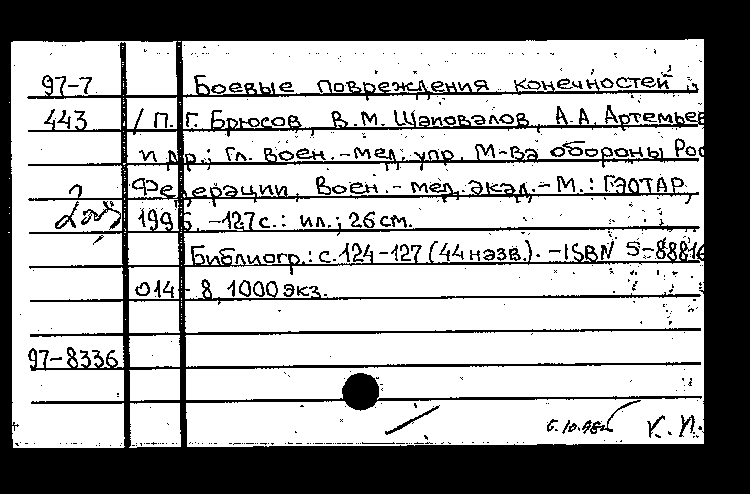 97-7 Боевые повреждения конечностей
443 / П.Г. Брюсов, В.М. Шаповалов, А.А. Артемьев
и др.; Гл. воен.-мед. упр. М-ва обороны Рос
Федерации, Воен.-мед. акад. - М.: ГЭОТАР,
1996. -127с.: ил.; 26см.
Библиогр.: с.124-127 (44 назв.). - ISBN 5-88816
014-8, 1000 экз.
97-8336
6.10.98г К.П.